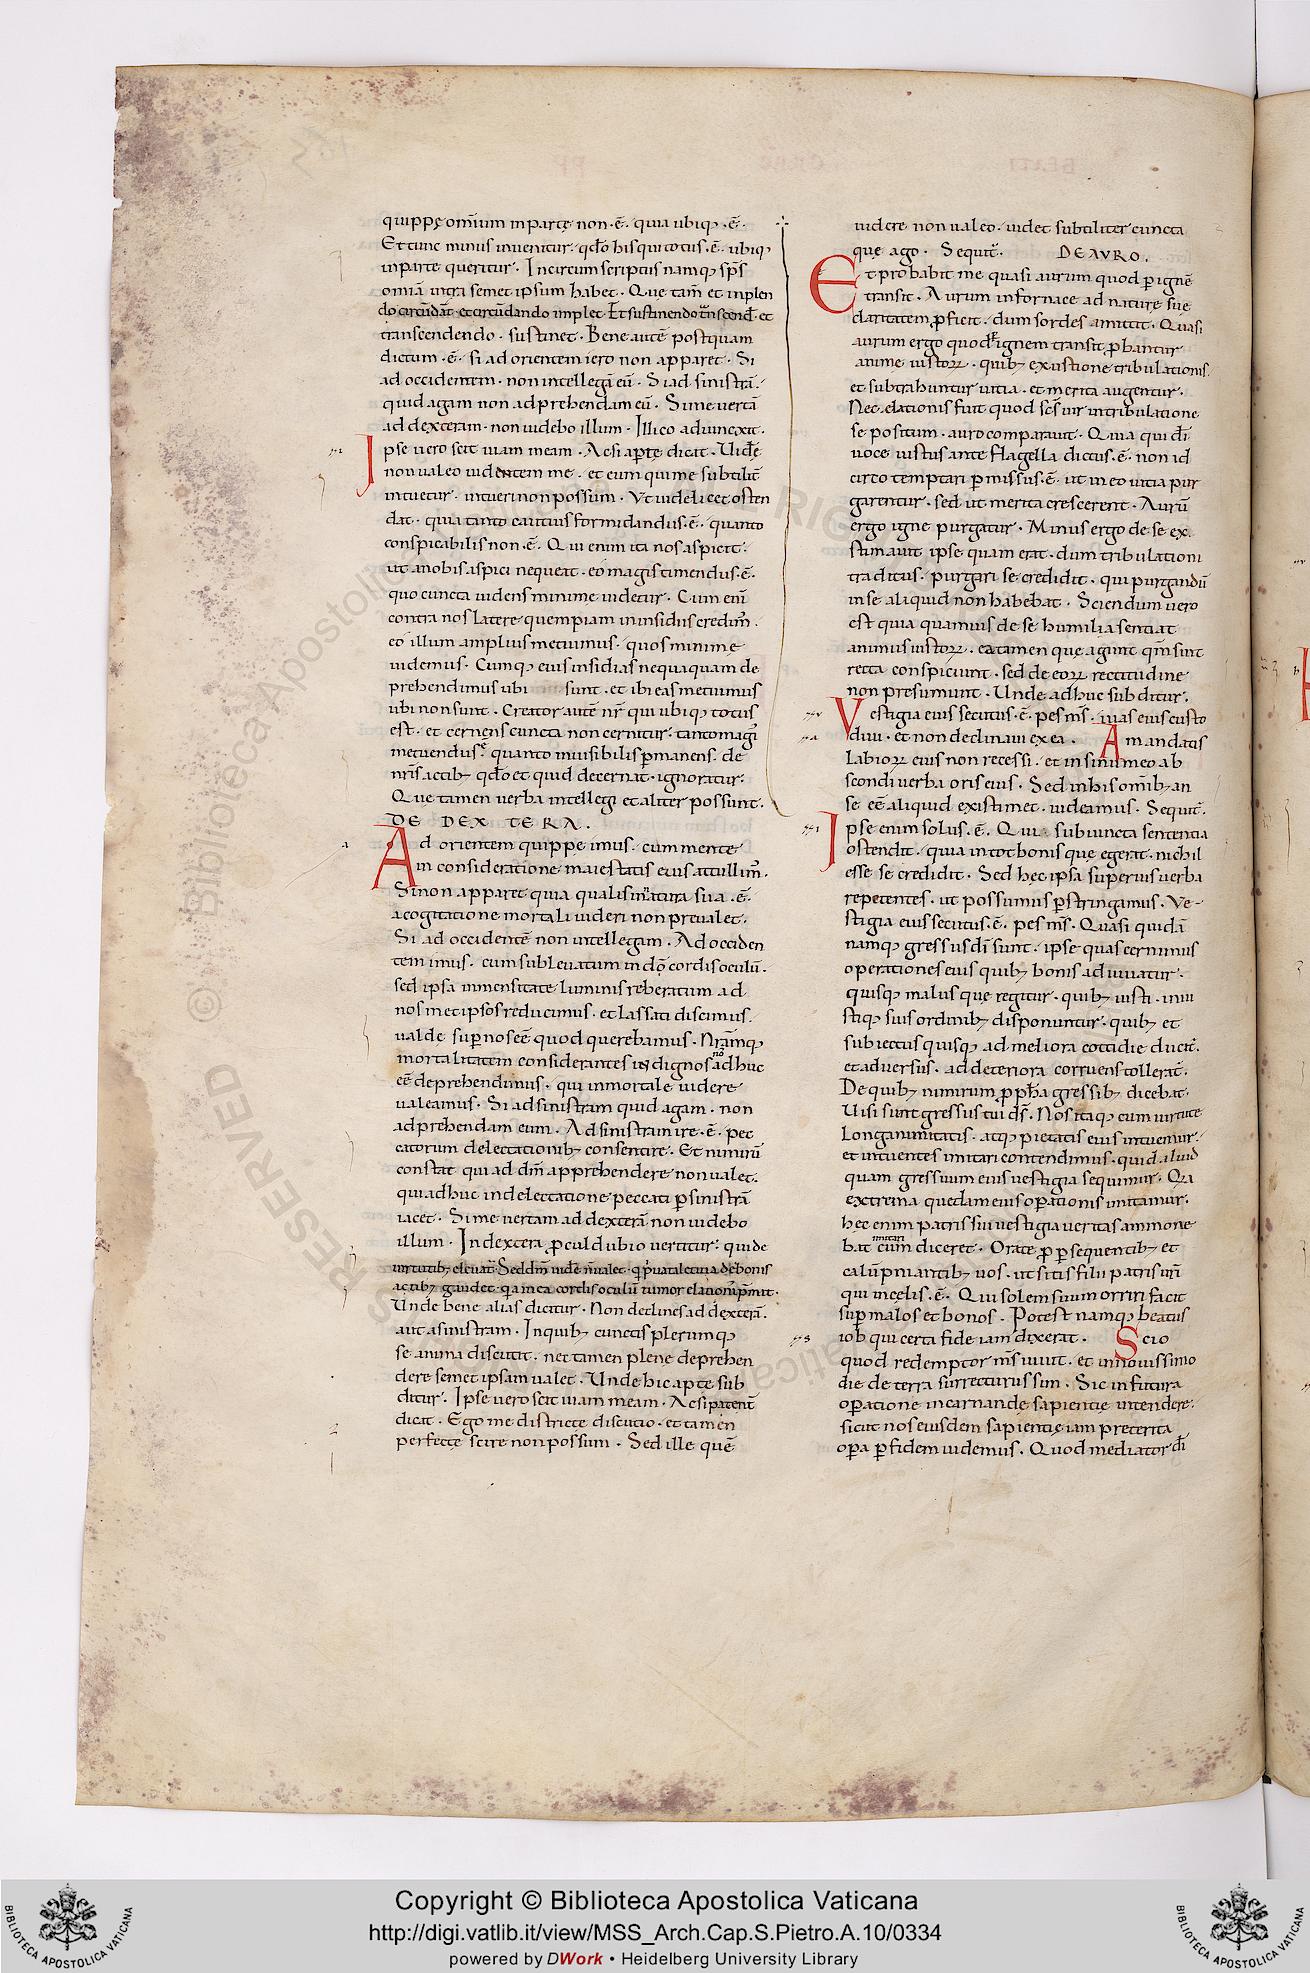 quippę omnium in partę non · ē · quia ubiq; · ē ·
Et tunc minus inuenitur · qd̄o his qui totus · ē · ubiq;
in parte queritur · Incircum scriptus namq; sp̄s
omīa intra semet ipsum habet · Que tam̄ et inplen
do circūdat · et circūdando implet · Et sustinendo transcend̄ · et
transcendendo · sustinet · Bene autē postquam
dictum · ē · si ad orientem iero non apparet · Si
ad occidentem · non intellegā eū · Si ad sinistrā ·
quid agam non adprehendam eū · Si me vertā
ad dexteram · non uidebo illum · Illico adiunexit ·
Ipse vero scit uiam meam · Ac si apte dicat · Uidē
non ualeo uidentem me · et eum qui me subtilit̄
intuetur · intueri non possum · Ut uidelicet osten
dat · quia tanto cautius formidandus · ē · quanto
conspicabilis non · ē · Qui enim ita nos aspicit ·
ut a nobis aspici nequeat · eo magis timendus · ē ·
quo cuncta uidens minime uidetur · Cum enī
contra nos latere quempiam in insidiis credim̄ ·
eo illum amplius metuimus · quos minimę
uidemus · Cumq; eius insidias nequaquam de
prehendimus ubi sunt · et ibi eas metuimus
ubi non sunt · Creator autē nr̄ qui ubiq; totus
est · et cernens cuncta non cernitur · tanto magis
metuendus ē quanto inuisibilis p̄manens · de
nr̄is actib; qd̄o et quid decernat · ignoratur ·
Que tamen verba intellegi et aliter possunt ·
DE DEXTERA ·
Ad orientem quippe imus · cum mente
in consideratione maiestatis eius attullim̄ ·
Si non apparet quia qualis in natura sua · ē ·
a cogitatione mortali uideri non preualet ·
Si ad occidentē non intellegam · Ad occiden
tem imus · cum subleuatum in dō cordis oculū ·
sed ipsa inmensitate luminis reberatum ad
nos met ipsos reducimus · et lassati discimus
ualde sup̄ nos eē quod querebamus · Nr̄amq;
mortalitatem considerantes indignos nō adhuc
eē deprehendimus · qui inmortale uidere
ualeamus · Si ad sinistram quid agam · non
adprehendam eum · Ad sinistram ire · ē · pec
catorum delectationib; consentire · Et nimirū
constat qui ad dm̄ apprehendere non ualet ·
qui adhuc in delectatione peccati p̄ sinistrā
iacet · Si me vertam ad dexterā non uidebo
illum · In dextera p̄cul dubio vertitur · qui de
uirtutib; eleuat̄ · Sed dm̄ uidē n̄ ualet · q̄ p̄uata letitia de bonis
actib; gaudet · q̄a in ea cordis oculū tumor elationis p̄mit ·
Unde bene alias dicitur · Non declines ad dexterā ·
aut a sinistram · In quib; cunctis plerumq;
se anima discutit · nec tamen plene deprehen
dere semet ipsam ualet · Unde hic apte sub
ditur · Ipse vero scit uiam meam · Ac si patent̄
dicat · Ego me districte discutio · et tamen
perfecte scire non possum · Sed ille quē
uidere non ualeo · uidet subtiliter cuncta
que ago · Sequit̄ · DE AVRO ·
Et probabit me quasi aurum quod p̄ ignē
transit · Aurum in fornace ad naturę suę
claritatem p̄ficit · dum sordes amittit · Quasi
aurum ergo quod ignem transit p̄bantur
animę iustoꝝ · quib; exustione tribulationis
et subtrahuntur uitia · et merita augentur ·
Nec elationis fuit quod scs̄ uir in tribulatione
se positum · auro comparauit · Quia qui dī
uoce iustus ante flagella dictus · ē · non id
circo temptari p̄missus · ē · ut in eo uitia pur
garentur · sed ut merita crescerent · Aurū
ergo igne purgatur · Minus ergo de se ex
stimauit ipse quam erat · dum tribulationi
traditus · purgari se credidit · qui purgandū
in se aliquid non habebat · Sciendum vero
est quia quamuis de se humilia sentiat
animus iustoꝝ · ea tamen quę agunt qm̄ sunt
recta conspiciunt · sed de eoꝝ rectitudine
non presumunt · Unde adhuc subditur ·
Vestigia eius secutus · ē · pes ms̄ · uias eius custo
diui · et non declinaui ex ea · A mandatis
labioꝝ eius non recessi · et in sinu meo ab
scondi verba oris eius · Sed in his omīb; an
se eē aliquid existimet · uideamus · Sequit̄ ·
Ipse enim solus · ē · Qui subiuncta sententia
ostendit · quia in tot bonis que egerat · nichil
esse se credidit · Sed hęc ipsa superius verba
repetentes · ut possumus p̄stringamus · Ve-
stigia eius secutus · ē · pes ms̄ · Quasi quidā
namq; gressus dī sunt · ipse quas cernimus
operationes eius quib; bonis adiuuatur ·
quisq; malusque regitur · quib; iusti · iniu
stiq; suis ordinib; disponuntur · quib; et
subiectus quisq; ad meliora cottidie ducit̄ ·
et aduersus · ad deteriora corruens tollerat̄ ·
De quib; nimirum p̄pha gressib; dicebat ·
Uisi sunt gressus tui ds̄ · Nos itaq; cum uirtute
longanimitatis · atq; pietatis eius intuemur ·
et intuentes imitari contendimus · quid aliud
quam gressuum eius vestigia sequimur · Qui
extrema quedam eius op̄ationis imitamur ·
hec enim patris sui vestigia ueritas ammone
bat imitari cum diceret · Orate p̄ p̄sequentib; et
calūpniantib; uos · ut sitis filii patris uri
qui in cęlis · ē · Qui solem suum oriri facit
sup̄ malos et bonos · Potest namq; beatus
iob qui certa fide iam dixerat · Scio
quod redemptor ms̄ uiuit · et in nouissimo
die de terra surrecturus sim · Sic in futura
op̄atione incarnandę sapientię intendere ·
sicut nos eiusdem sapientię iam preterita
op̄a p̄ fidem uidemus · Quod mediator dī
Copyright © Biblioteca Apostolica Vaticana
http://digi.vatlib.it/view/MSS_Arch.Cap.S.Pietro.A.10/0334
powered by DWork • Heidelberg University Library